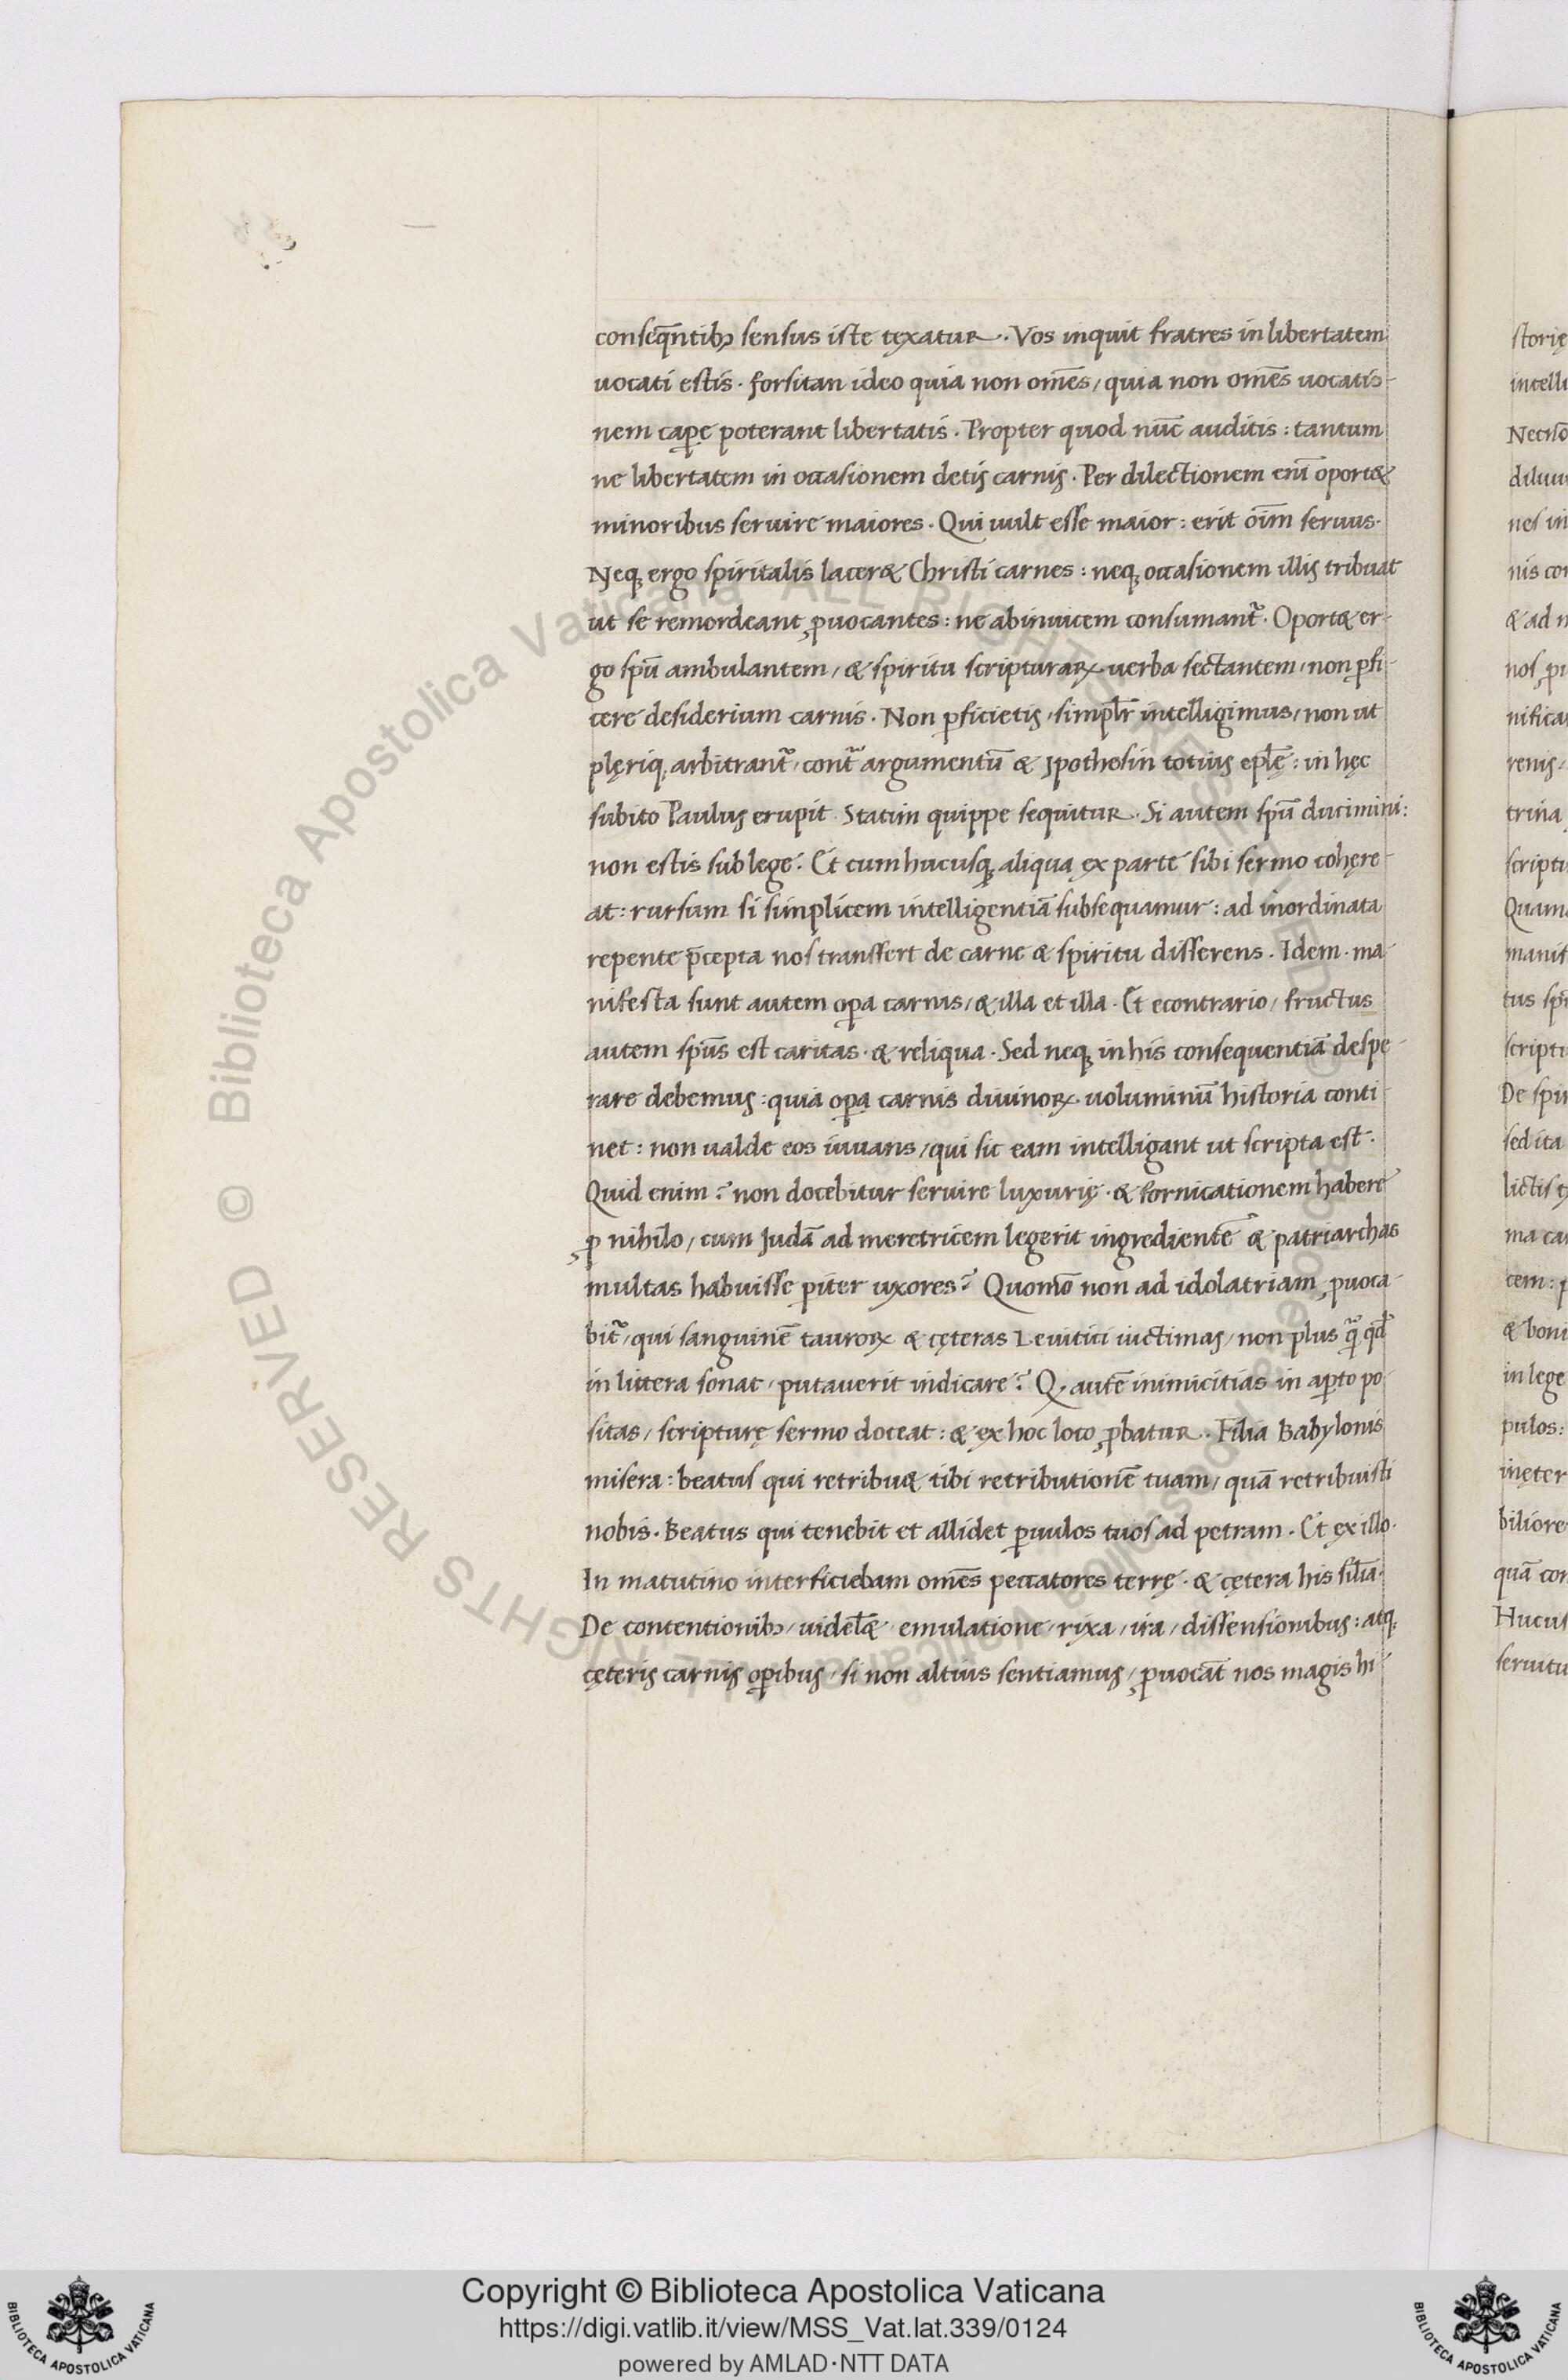 conseq̄ntibꝫ sensus iste tęxatur. Vos inquit fratres in libertatem
uocati estis. forsitan ideo quia non om̄es, quia non om̄es uocatio-
nem cap̱ę poterant libertatis. Propter quod nūc auditis: tantum
ne libertatem in occasionem detis carnis. Per dilectionem enī oport&
minoribus seruire maiores. Qui uult esse maior: erit oīm seruus.
Neqꝫ ergo spiritalis lacer& Christi carnes: neqꝫ occasionem illis tribuat
ut se remordeant ꝓuocantes: ne abinuicem consumant᷑. Oport& er-
go spū ambulantem, & spiritu scripturaꝝ uerba sectantem, non ꝑfi-
cere desiderium carnis. Non ꝑficietis, simpl̄r intelligimus, non ut
plęriqꝫ arbitrant᷑, cont᷑ argumentū & jpothesin totius epl̄ę: in hęc
subito Paulus erupit. Statim quippe sequitur. Si autem spū ducimini:
non estis sub lege. Et cum hucusqꝫ aliqua ex parte sibi sermo cohęre-
at: rursum si simplicem intelligentiā subsequamur: ad inordinata
repente p̄cepta nos transfert de carne & spiritu disserens. Idem. ma-
nifesta sunt autem oꝑa carnis, & illa et illa. Et econtrario, fructus
autem spūs est caritas. & reliqua. Sed neqꝫ in his consequentiā despe-
rare debemus: quia oꝑa carnis diuinoꝝ uoluminū historia conti-
net: non ualde eos iuuans, qui sic eam intelligant ut scripta est.
Quid enim? non docebitur seruire luxurię. & fornicationem habere
ꝓ nihilo, cum Judā ad meretricem legerit ingredientē & patriarchas
multas habuisse ꝑiter uxores? Quom̄o non ad idolatriam ꝓuoca-
bit᷑, qui sanguinē tauroꝝ & cęteras Leuitici uictimas, non plus q̄ qd̄
in littera sonat, putauerit indicare? Qꝫ autē inimicitias in aꝑto po-
sitas, scripturę sermo doceat: & ex hoc loco ꝓbatur. Filia Babylonis
misera: beatus qui retribu& tibi retributionē tuam, quā retribuisti
nobis. Beatus qui tenebit et allidet ꝑuulos tuos ad petram. Et ex illo.
In matutino interficiebam om̄es peccatores terrę. & cętera his sil̄ia.
De contentionibꝫ, uidel̄& emulatione, rixa, ira, dissensionibus: atqꝫ
cęteris carnis oꝑibus, si non altius sentiamus, ꝓuocāt nos magis hi-
storię
Copyright © Biblioteca Apostolica Vaticana
https://digi.vatlib.it/view/MSS_Vat.lat.339/0124
powered by AMLAD·NTT DATA